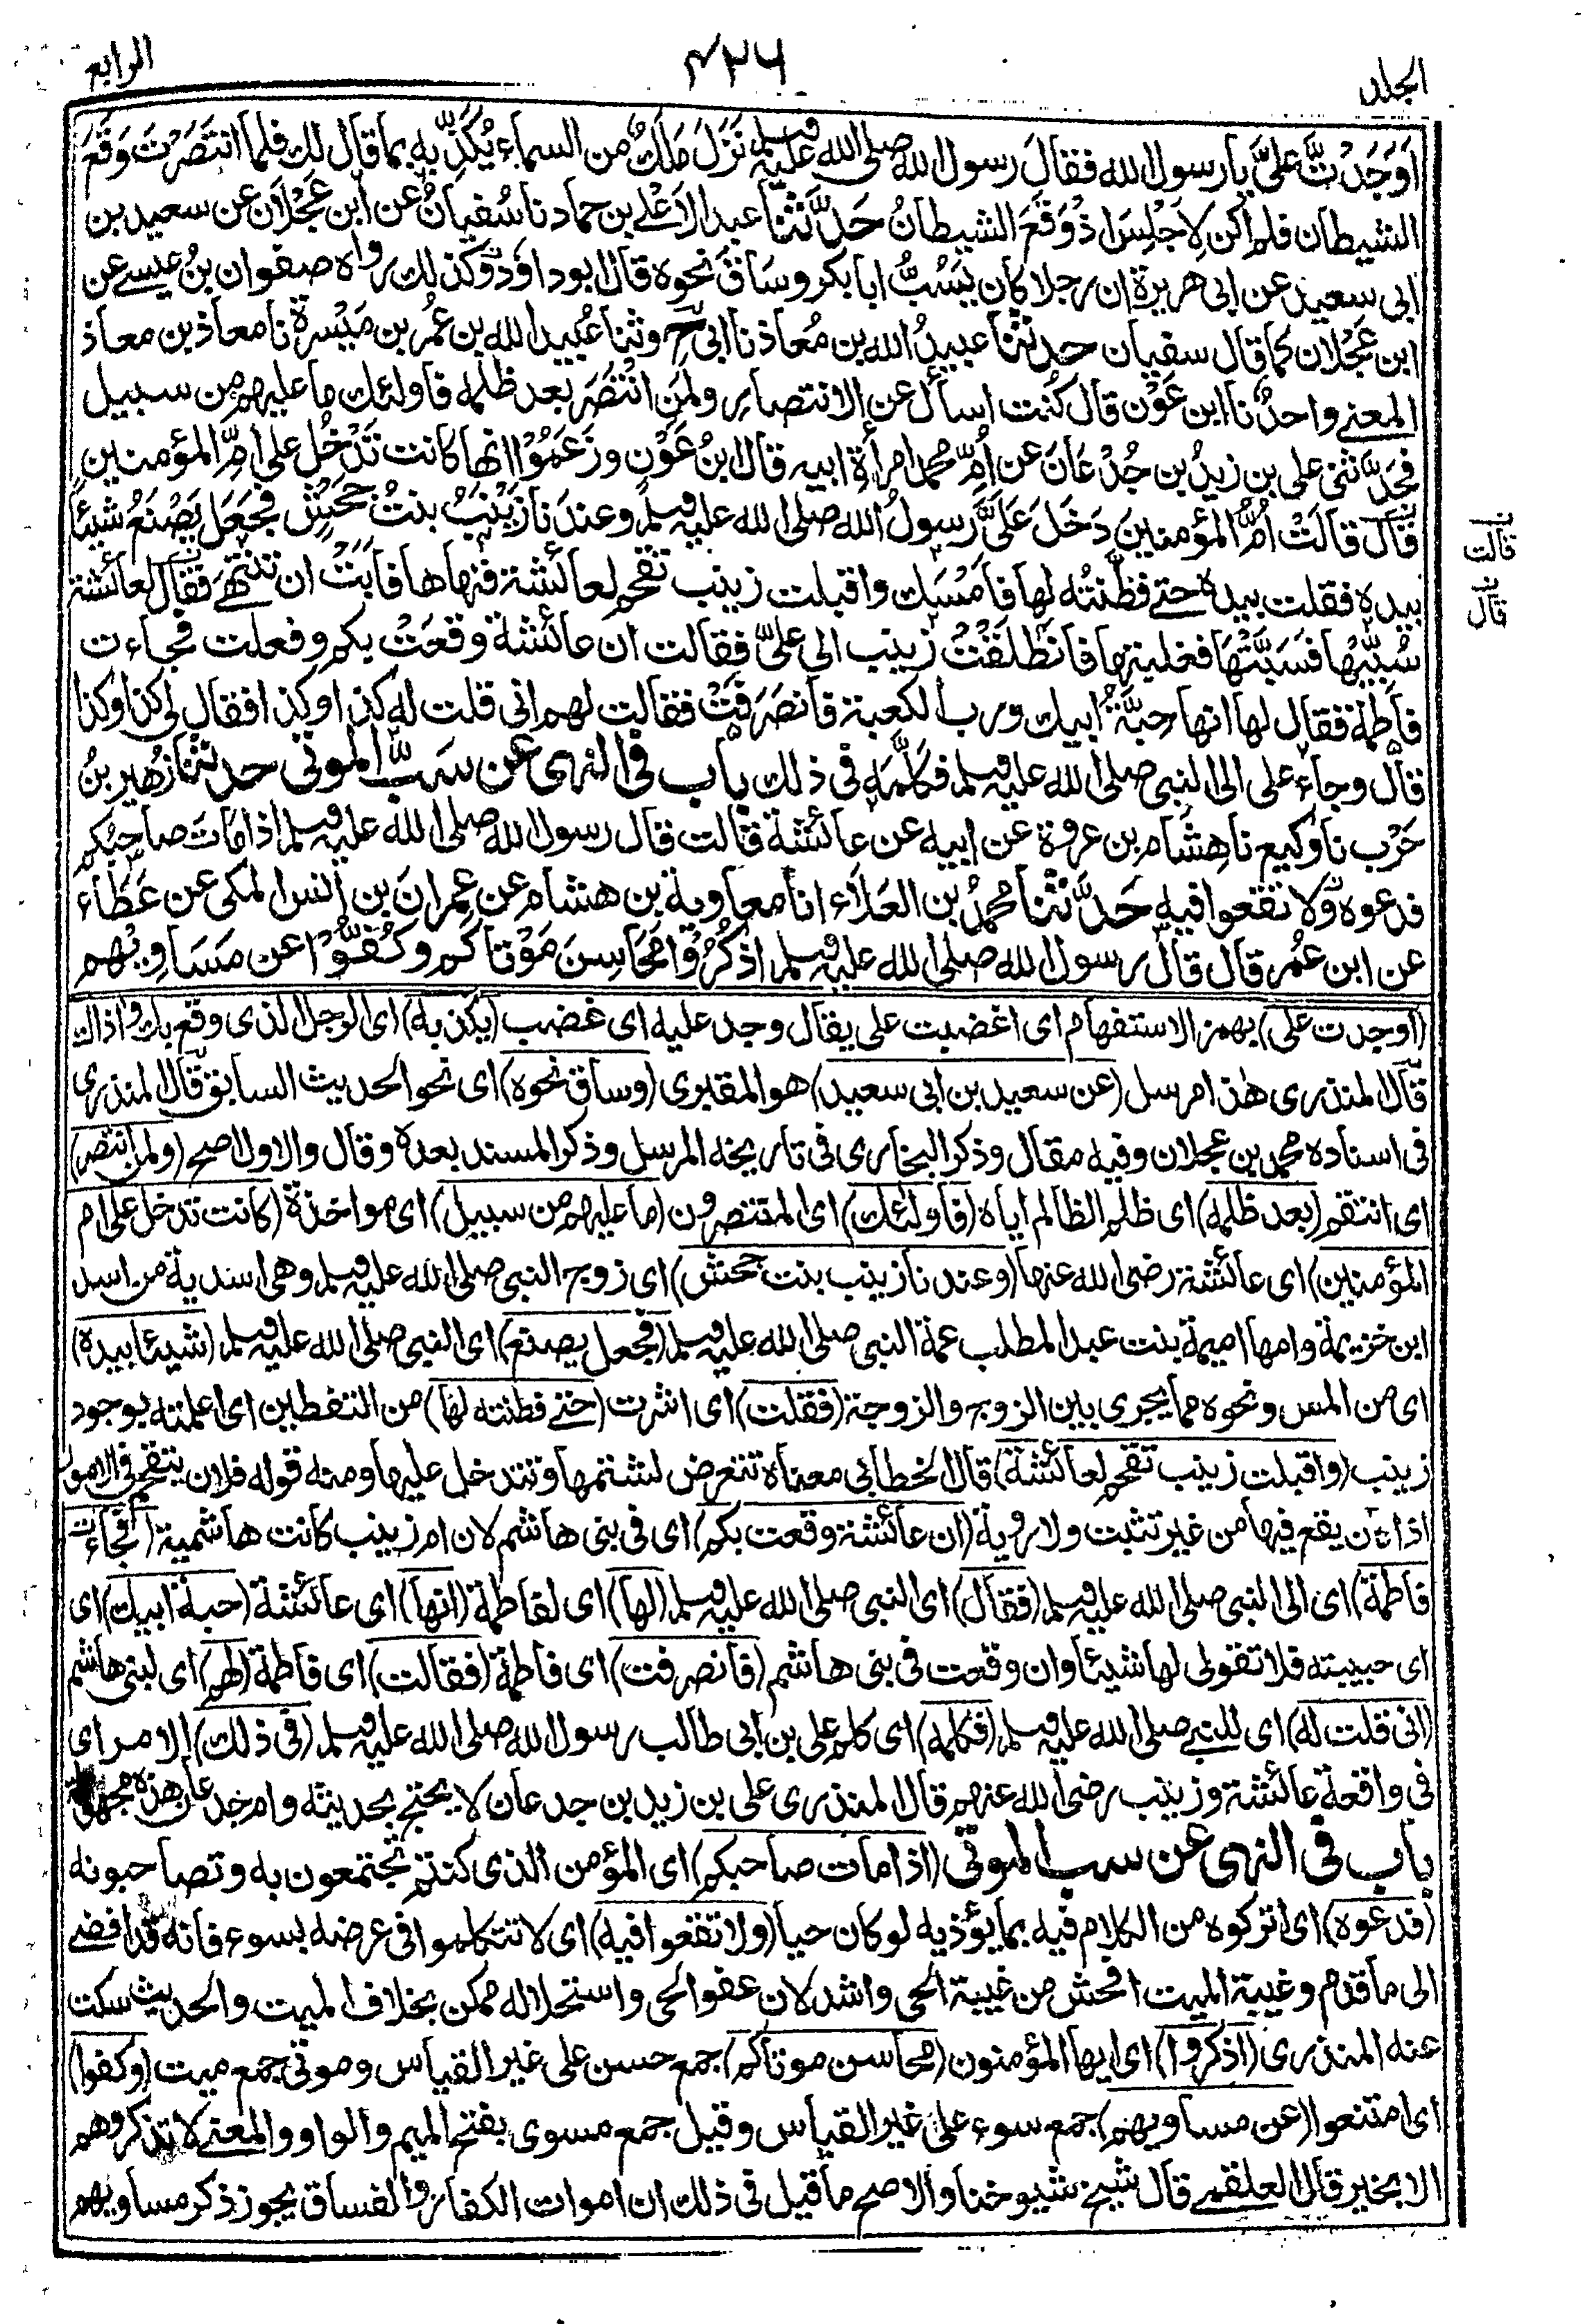 الجلد
٤٢٦
الرابع
اَوَجَدْتَّ عَلَيَّ يا رسول الله فقالَ رسول الله صلى الله عليه وسلم نَزَلَ مَلَكٌ من السماء يُكَذِّبه بما قال لك فلما انتَصَرْتَ وَقَعَ
الشيطان فلم اكن لِاَجْلِسَ اذ وَقَعَ الشيطانُ حَدَّثَنَا عبد الاَعْلے بن حماد نا سُفيانُ عن ابن عَجْلَان عن سعيد بن
ابى سعيد عن ابى هريرة ان رجلا كان يَسُبُّ ابا بكر وسَاقَ نحوه قال ابو داؤد وكذلك رواه صفوان بنُ عيسے عن
ابن عَجْلان كما قال سفيان حدثنا عبيدُ الله بن مُعاذ نا ابى ح وثنا عُبيد الله بن عُمر بن مَيْسرة نا معاذ بن معاذ
المعنے واحدٌ نا ابن عَوْن قال كنت اسأل عن الانتصار ولمَنِ انْتَصَرَ بعد ظلمه فاولئك ما عليهم من سبيل
فحَدَّثنى على بن زيدُ بن جُدْعَانَ عن اُمِّ محمد امرأة ابيه قال ابنُ عَوْن وزَعَمُوْا انها كانت تَدْخُل على اُمِّ المؤمنين
قال قالَتْ اُمُّ المؤمنين دَخَلَ عَلَيَّ رسولُ الله صلى الله عليه وسلم وعندَنا زَيْنَبُ بنتُ جَحْشٍ فجَعَلَ يَصْنَعُ شيئًا
بيده فقلت بيده حتے فطَّنتُه لها فاَمْسَك واقبلت زينب تقحم لعائشة فنهاها فاَبَتْ ان تنتهے فقال لعائشة
سُبِّيْها فسَبَّتْها فغلبتها فانْطَلَقَتْ زينب الى علیّ فقالت ان عائشة وقعَتْ بكم وفعلت فجاءت
فاطمة فقال لها انها حِبَّةُ ابيك ورب الكعبة فانصَرَفَتْ فقالت لهم انى قلت له كذا وكذا فقال لى كذا وكذا
قال وجاء على الى النبى صلى الله عليه وسلم فكلَّمه فى ذلك باب فى النهى عن سَبِّ الموتى حدثنا زُهير بنُ
حَرْب نا وكيع نا هِشَام بن عروة عن ابيه عن عائشة قالت قال رسول الله صلى الله عليه وسلم اذا مَاتَ صاحبُكم
فدعوه ولا تقعوا فيه حَدَّثَنَا محمدُ بن العَلَاء انا معاوية بن هشام عن عِمرانَ بن انس المكى عن عَطَاء
عن ابن عُمر قال قال رسول الله صلى الله عليه وسلم اذكُرُوْا مَحَاسِنَ مَوْتَاكم وكُفُّوْا عن مَسَاوِيهم
(اوجدت على) بهمز الاستفهام اى اغضبت على يقال وجد عليه اى غضب (يكذبه) اى الرجل الذى وقع بك واذاك
قال المنذرى هذا مرسل (عن سعيد بن ابى سعيد) هو المقبرى (وساق نحوه) اى نحو الحديث السابق قال المنذرى
فى اسناده محمد بن عجلان وفيه مقال وذكر البخارى فى تاريخه المرسل وذكر المسند بعده وقال والاول اصح (ولمن انتصر)
اى انتقم (بعد ظلمه) اى ظلم الظالم اياه (فاولئك) اى المنتصرون (ما عليهم من سبيل) اى مواخذة (كانت تدخل على ام
المؤمنين) اى عائشة رضى الله عنها (وعندنا زينب بنت جحش) اى زوج النبى صلى الله عليه وسلم وهى اسدية من اسد
ابن خزيمة وامها اميمة بنت عبد المطلب عمة النبى صلى الله عليه وسلم (فجعل يصنع) اى النبى صلى الله عليه وسلم (شيئا بيده)
اى من المس ونحوه مما يجرى بين الزوج والزوجة (فقلت) اى اشرت (حتے فطنته لها) من التفطين اى اعلمته بوجود
زينب (واقبلت زينب تقحم لعائشة) قال الخطابى معناه تتعرض لشتمها وتتدخل عليها ومنه قوله فلان يتقحم فى الامور
اذا كان يقع فيها من غير تثبت ولا روية (ان عائشة وقعت بكم) اى فى بنى هاشم لان ام زينب كانت هاشمية (فجاءت
فاطمة) اى الى النبى صلى الله عليه وسلم (فقال) اى النبى صلى الله عليه وسلم (لها) اى لفاطمة (انها) اى عائشة (حبة ابيك) اى
اى حبيبته فلا تقولى لها شيئا وان وقعت فى بنى هاشم (فانصرفت) اى فاطمة (فقالت) اى فاطمة (لهم) اى لبنى هاشم
(انى قلت له) اى للنبے صلى الله عليه وسلم (فكلمه) اى كلم على بن ابى طالب رسول الله صلى الله عليه وسلم (فى ذلك) الامر اى
فى واقعة عائشة وزينب رضى الله عنهم قال المنذرى على بن زيد بن جدعان لا يحتج بحديثه وام جدعان هذه مجهولة
باب فى النهى عن سب الموتى (اذا مات صاحبكم) اى المؤمن الذى كنتم تجتمعون به وتصاحبونه
(فدعوه) اى اتركوه من الكلام فيه بما يؤذيه لو كان حيا (ولا تقعوا فيه) اى لا تتكلموا فى عرضه بسوء فانه قد افضے
الى ما قدم وغيبة الميت افحش من غيبة الحى واشد لان عفو الحى واستحلاله ممكن بخلاف الميت والحديث سكت
عنه المنذرى (اذكروا) اى ايها المؤمنون (محاسن موتاكم) جمع حسن على غير القياس وموتى جمع ميت (وكفوا)
اى امتنعوا (عن مساويهم) جمع سوء على غير القياس وقيل جمع مسوى بفتح الميم والواو والمعنے لا تذكروهم
الا بخير قال العلقمے قال شيخ شيوخنا والاصح ما قيل فى ذلك ان اموات الكفار والفساق يجوز ذكر مساويهم
قالت
قال